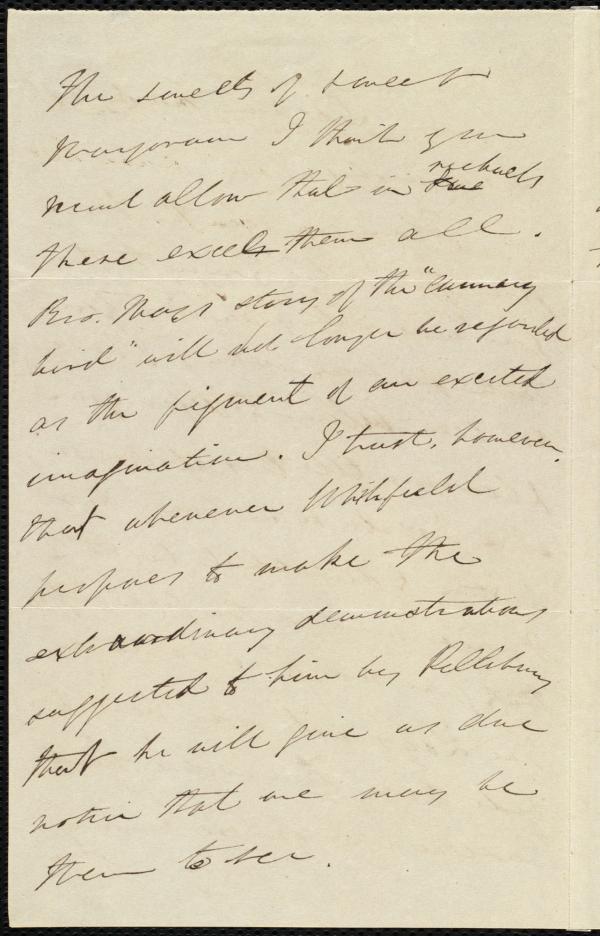 The sweets of sweet
Marjoram I think you
must allow that in richness
these excels them all.
Bro. May's story of the "Cannary
bird" will not longer be regarded
as the figment of an excited
imagination. I trust, however,
that whenever Whitfield
proposes to make the
extraordinary demonstrations
suggested to him by Pillsbury
that he will give us due
notice that we may be
there to see.